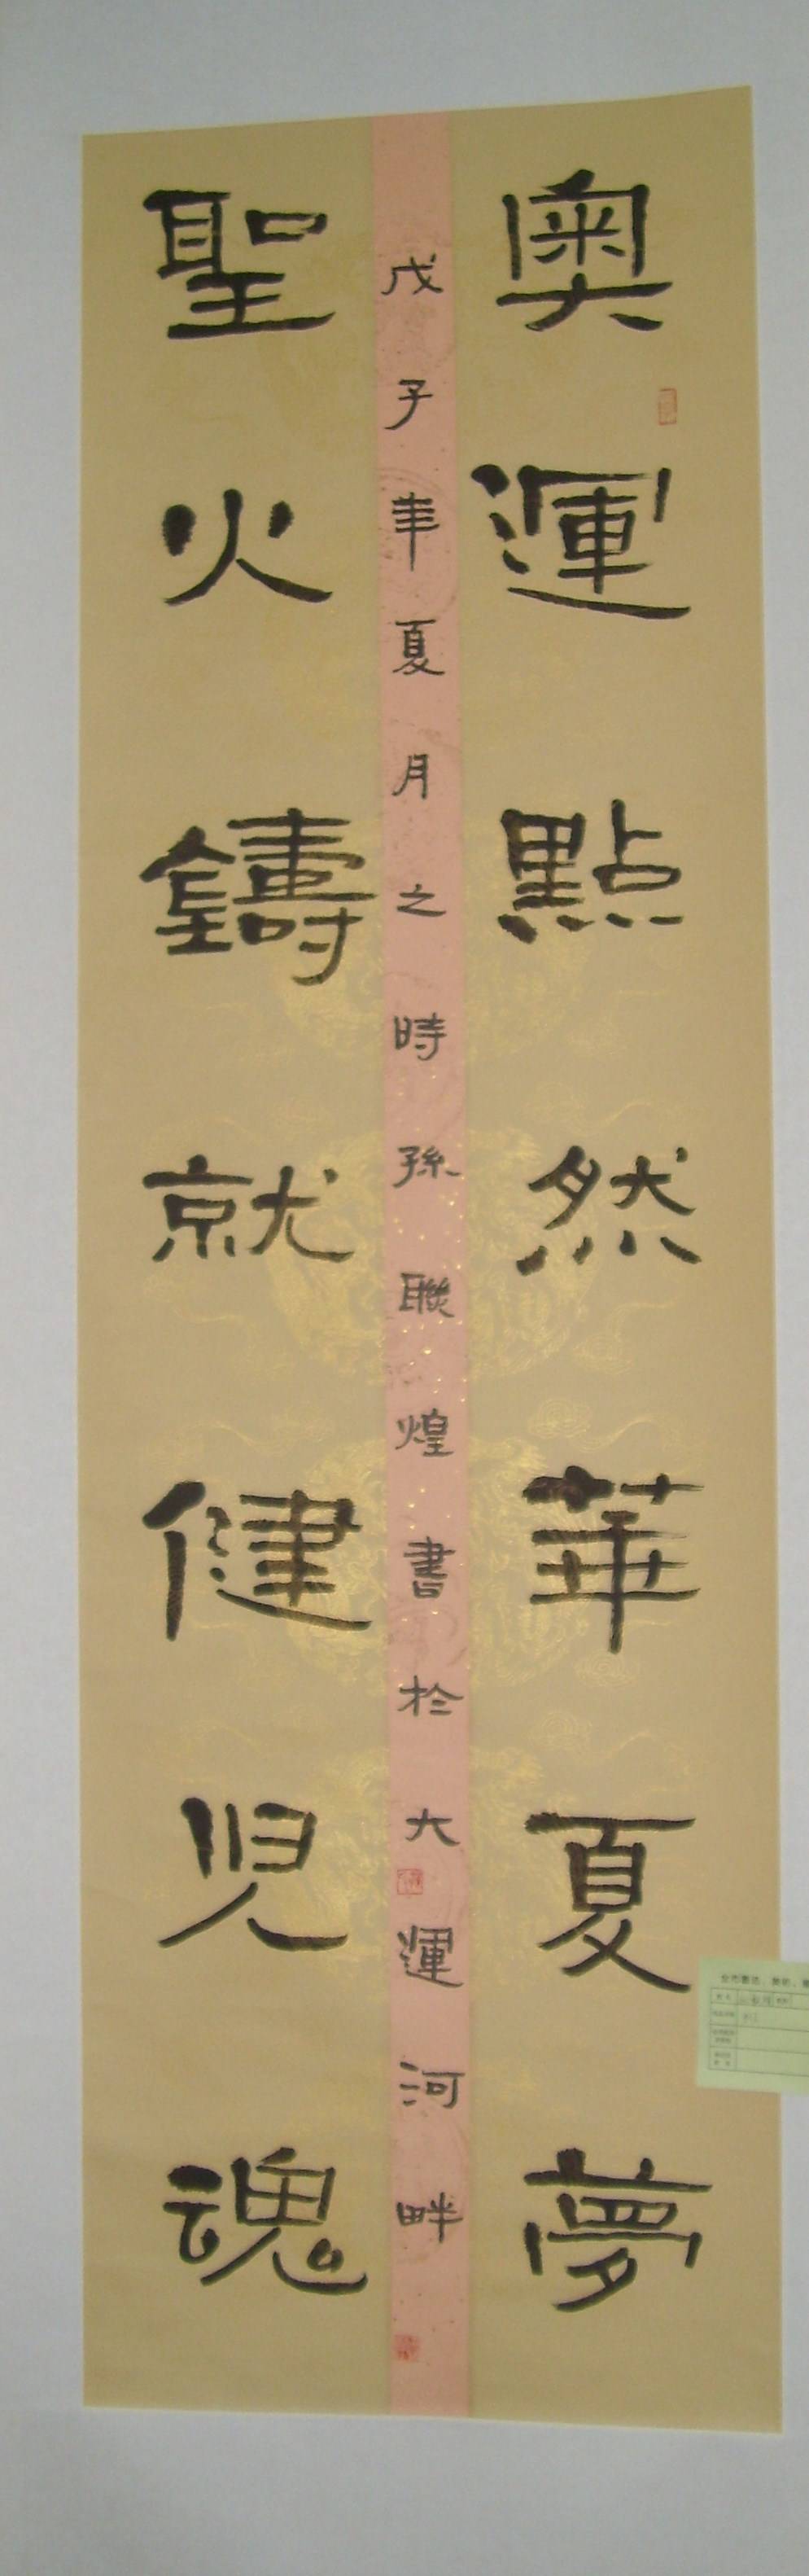 奧運點然華夏夢
戊子年夏月之時孫聯煌書於大運河畔
聖火鑄就健児魂